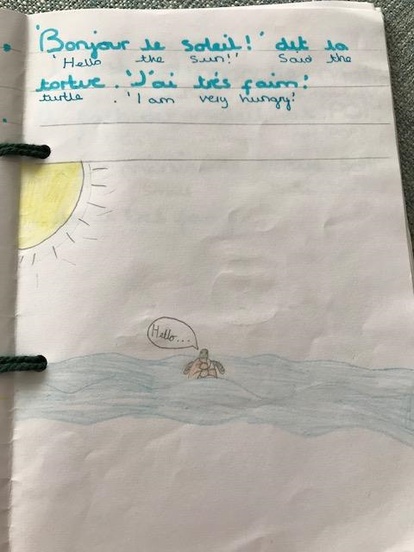 'Bonjour le soleil!' dit la
'Hello the sun!' Said the
tortue. 'J'ai trés faim!'
turtle. 'I am very hungry!'
Hello...